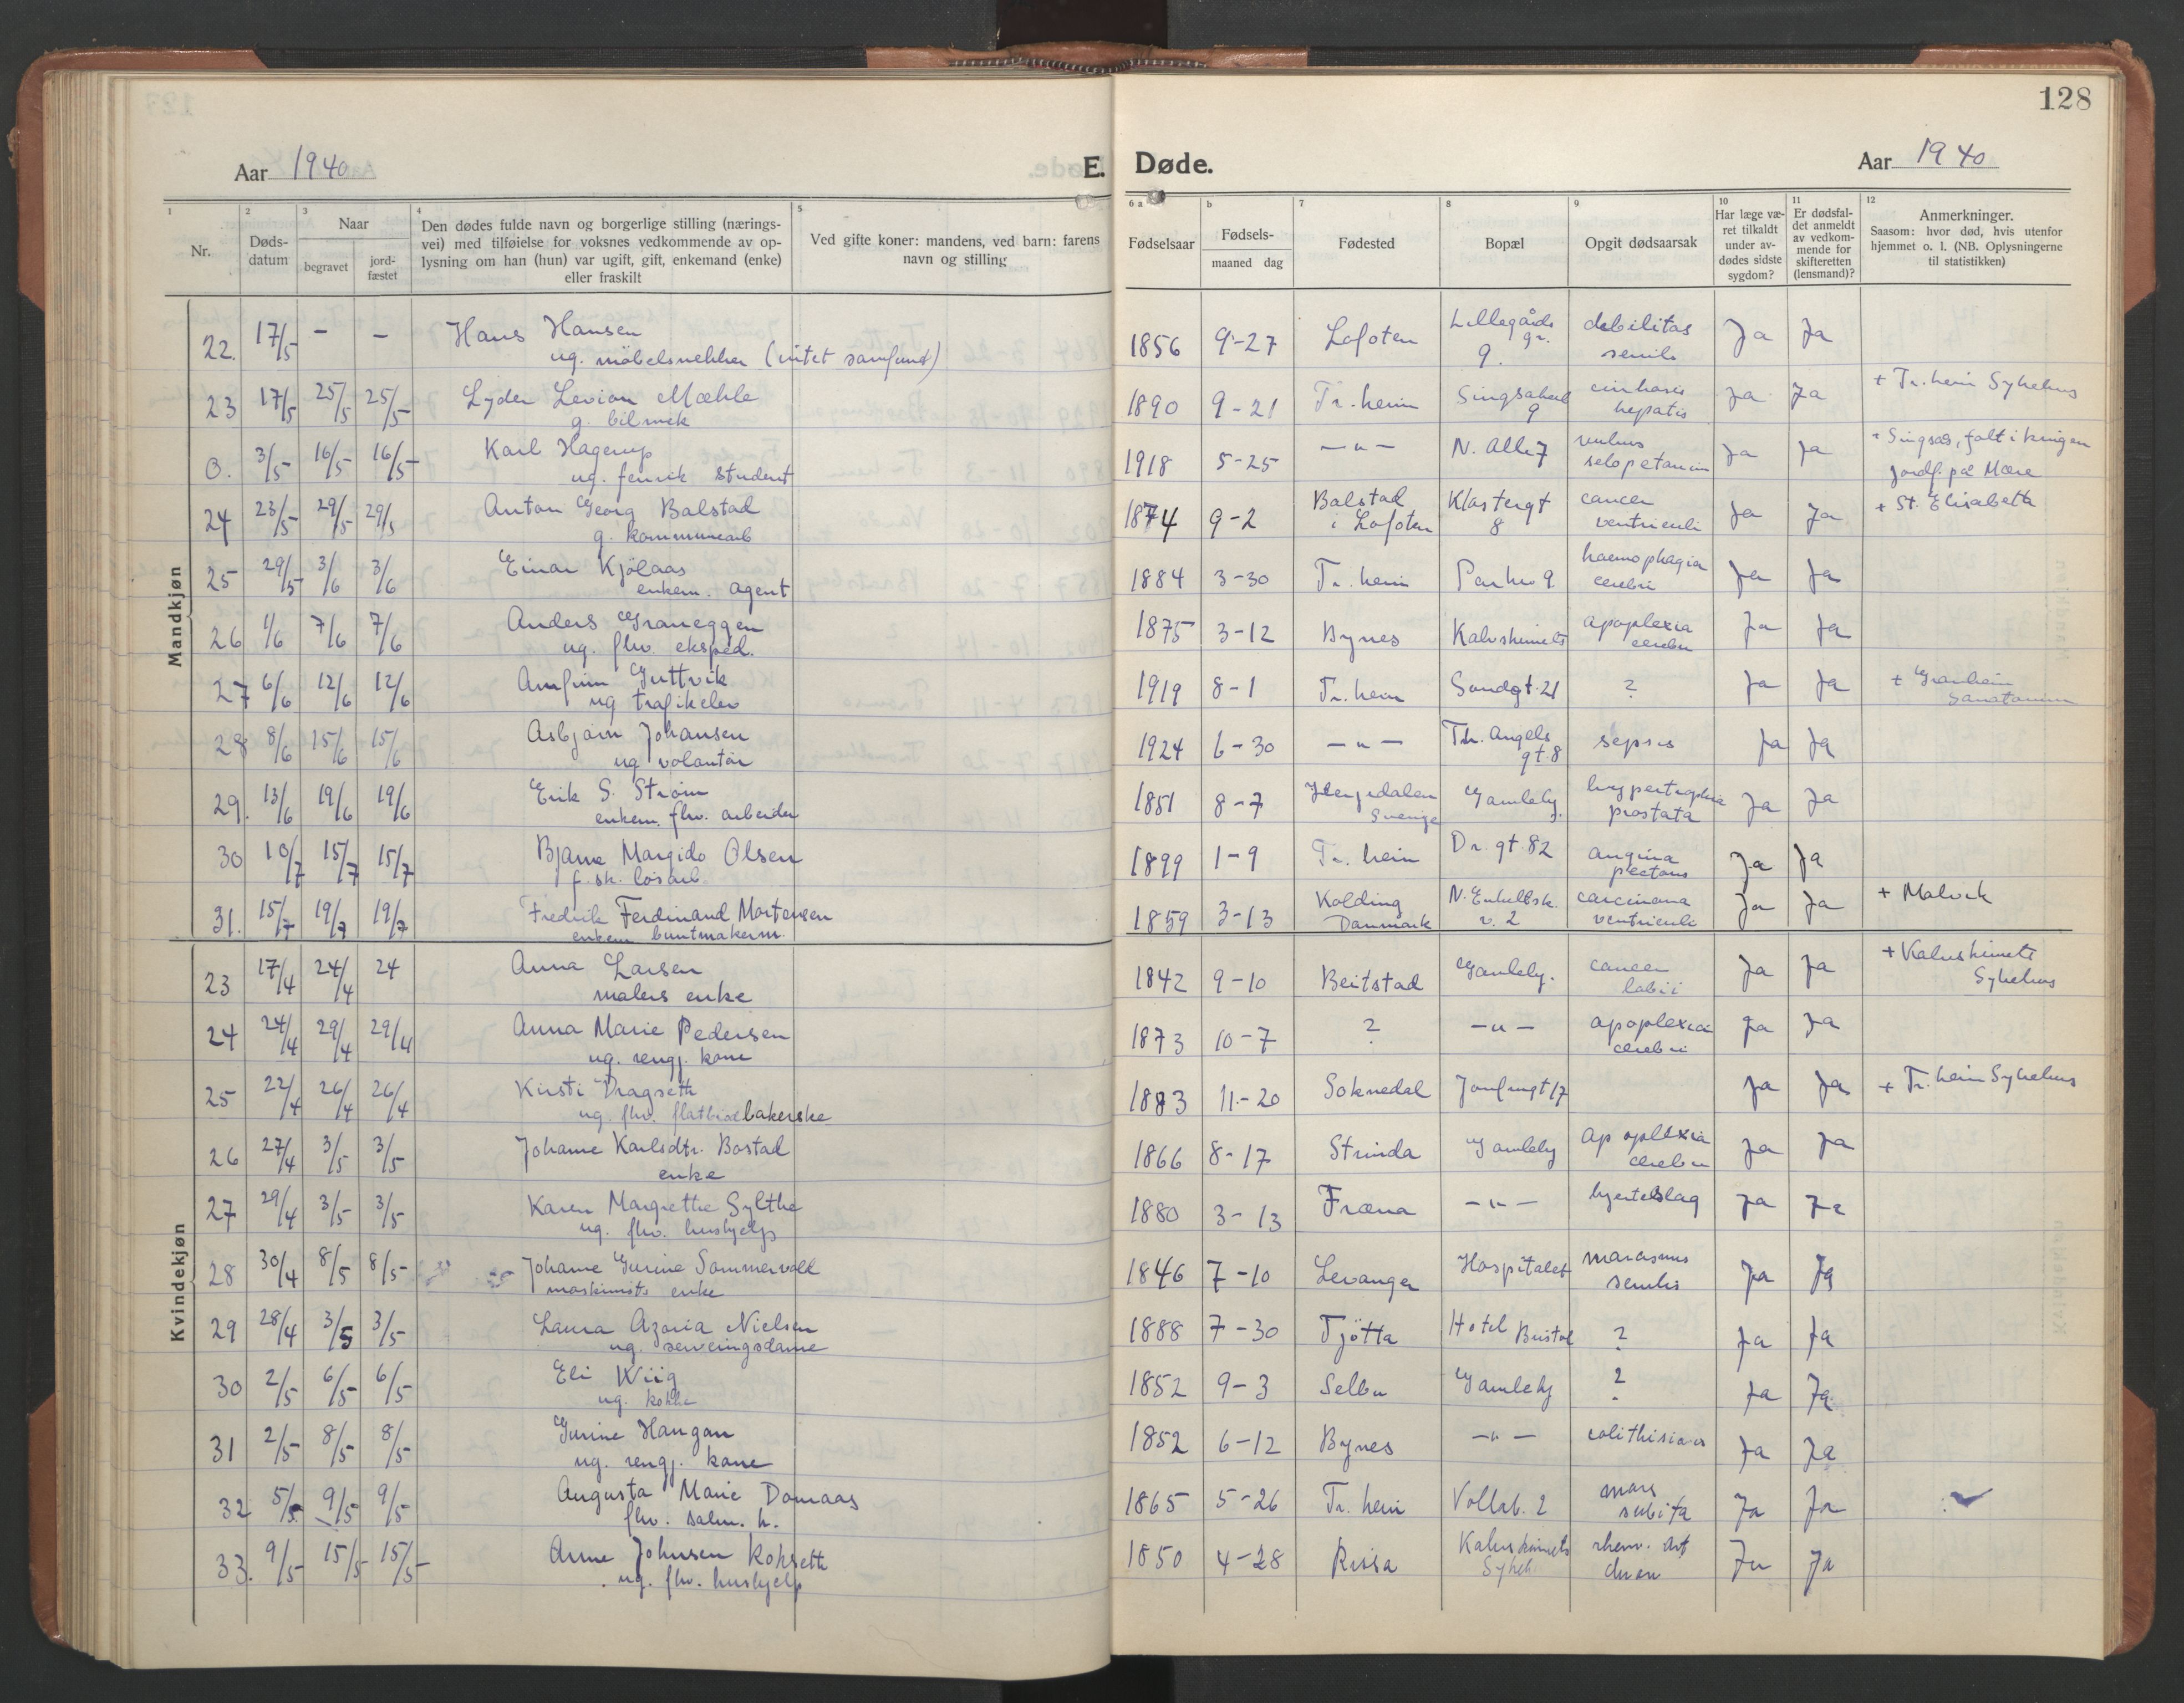 128
Aar 1940
E. Døde.
Aar 1940
1 2 3 4 5 6 a b 7 8 9 10 11 12
Nr.
Døds-
datum
Naar
begravet
jord-
fæstet
Den dødes fulde navn og borgerlige stilling (nærings-
vei) med tilføielse for voksnes vedkommende av op-
lysning om han (hun) var ugift, gift, enkemand (enke)
eller fraskilt
Ved gifte koner: mandens, ved barn: farens
navn og stilling
Fødselsaar
Fødsels-
maaned dag
Fødested
Bopæl
Opgit dødsaarsak
Har læge væ-
ret tilkaldt
under av-
dødes sidste
sygdom?
Er dødsfal-
det anmeldt
av vedkom-
mende for
skifteretten
(lensmand)?
Anmerkninger.
Saasom: hvor død, hvis utenfor
hjemmet o. l. (NB. Oplysningerne
til statistikken)
Mandkjøn
22. 17/5 - - Hans Hansen 1856 9-27 Lofoten Lillegårds debilitas Ja Ja
ug. möbelsnekker (intet samfund) gr. 9. senilis
23 17/5 25/5 25/5 Lyder Levion Mæhle 1890 9-21 Tr.heim 9 hepatis Ja Ja + Tr.heim Sykehus
g. bilmek
0. 3/5 16/5 16/5 Karl Hagerup 1918 5-25 -"- N. Alle 7 Ja Ja Singsås, falt i krigen
ug. fenrik student jordf. på Mære
24 23/5 29/5 29/5 Anton Georg Balstad 1874 9-2 Balstad Klostergt cancer Ja Ja + St. Elisabeth
g. kommunearb i Lofoten 8 ventriculi
25 29/5 3/6 3/6 Einar Kjölaas 1884 3-30 Tr.heim 9 haemophagia Ja Ja
enkem. agent cerebri
26 1/6 7/6 7/6 Anders Graneggen 1875 3-12 Bynes Kalvskinnets apoplexia Ja Ja
ug. fhv. eksped. cerebri
27 6/6 12/6 12/6 Arnfinn Guttvik 1919 8-1 Tr.heim Sandgt. 21 ? Ja Ja + Granheim
ug trafikelev Sanatorium
28 8/6 15/6 15/6 Asbjørn Johansen 1924 6-30 -"- Th. Angels sepsis Ja Ja
ug volontör gt. 8
29. 13/6 19/6 19/6 Erik S. Strøm 1851 8-7 Herjedalen Gamleby hypertrophia Ja Ja
enkem. fhv. arbeider Sverige prostata
30 10/7 15/7 15/7 Bjarne Margido Olsen 1899 1-9 Tr.heim Dr. gt. 82 angina Ja Ja
f. sk. løsarb. pectoris
31. 15/7 19/7 19/7 Fredrik Ferdinand Mortensen 1859 3-13 Kolding carcinoma Ja Ja + Malvik
enkem buntmakerm. Danmark v. 2 ventriculi
Kvindekjøn
23 17/4 24/4 24 Anna Larsen 1842 9-10 Beitstad Gamleby. cancer Ja Ja + Kalvskinnets
malers enke labii Sykehus
24 24/4 29/4 29/4 Anna Marie Pedersen 1873 10-7 ? -"- apoplexia Ja Ja
ug. rengj. kone cerebri
25 22/4 26/4 26/4 Kirsti Dragseth 1883 11-20 Soknedal Jomfrugt 17 Ja Ja + Tr.heim Sykehus
ug. fhv. flatbrødbakerske
26 27/4 3/5 3/5 Johanne Karlsdtr. Bostad 1866 8-17 Strinda Gamleby apoplexia Ja Ja
enke cerebri
27 29/4 3/5 3/5 Karen Margrethe Sylthe 1880 3-13 Fræna -"- hjerteslag Ja Ja
ug. fhv. hushjelp
28 30/4 8/5 8/5 Johanne Gurine Sommervoll 1846 7-10 Levanger Hospitalet marasmus Ja Ja
maskinists enke senilis
29 28/4 3/5 3/5 Laura Azoria Nielsen 1888 7-30 Tjötta Hotel Bristol ? Ja Ja
ug. serveringsdame
30 2/5 6/5 6/5 Eli Wiig 1852 9-3 Selbu Gamleby ? Ja Ja
ug. kokke
31 2/5 8/5 8/5 Gurine Haugan 1852 6-12 Bynes -"- Ja Ja
ug. rengj. kone
32 5/5 9/5 9/5 Augusta Marie Domaas 1865 5-26 Tr.heim Vollab. 2 mors Ja Ja
fhv. subita
33. 9/5 15/5 15/5 Anne Johnsen Kopseth 1850 4-28 Rissa Kalvskinnets Ja Ja
ug. fhv. hushjelp